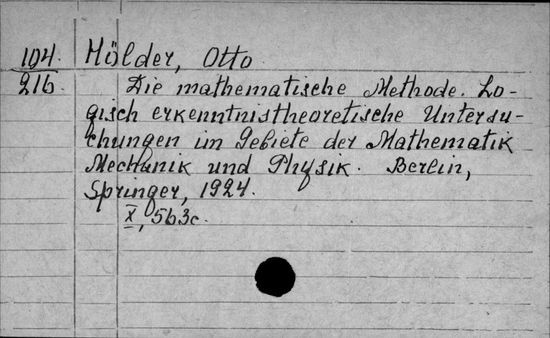 104. Hölder, Otto
216. Die mathematische Methode. Lo-
gisch erkenntnistheoretische Untersu-
chungen im Gebiete der Mathematik
Mechanik und Physik. Berlin,
Springer, 1924.
X, 563c.